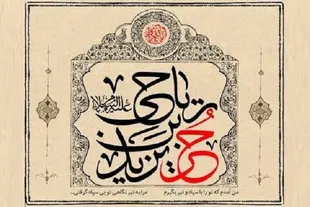 حر بن یزید ریاحی
علیه‌السلام
من آمدم که تو را با سپاه و تیر بگیرم
مرا به تیر نگاهی تو بی سپاه گرفتی